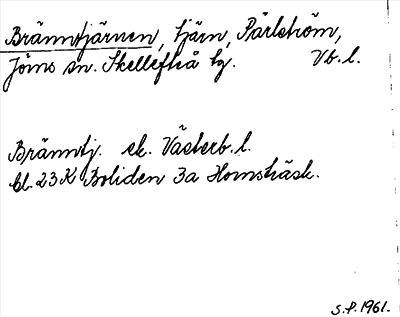 Bränntjärnen, tjärn, Pärlström,
Jörns sn. Skellefteå kg. Vb. l.
Bränntj. ek. Västerb. l.
bl. 23K Boliden 3a Hornsträsk.
S.P. 1961.